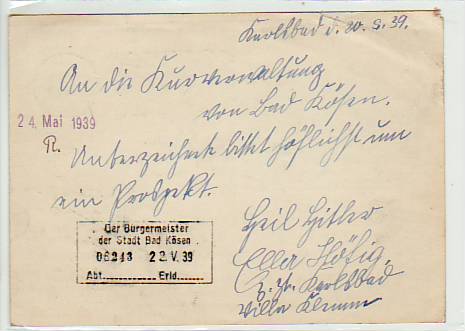 Karlsbad d. 20. 5. 39.
An die Kurverwaltung
von Bad Kösen.
24. Mai 1939
R.
Unterzeichnete bittet höflichst um
ein Prospekt.
Heil Hitler
Ella
z. Zt. Karlsbad
Villa Klemm
Der Bürgermeister
der Stadt Bad Kösen
06243 23. V. 39
Abt. Erld.